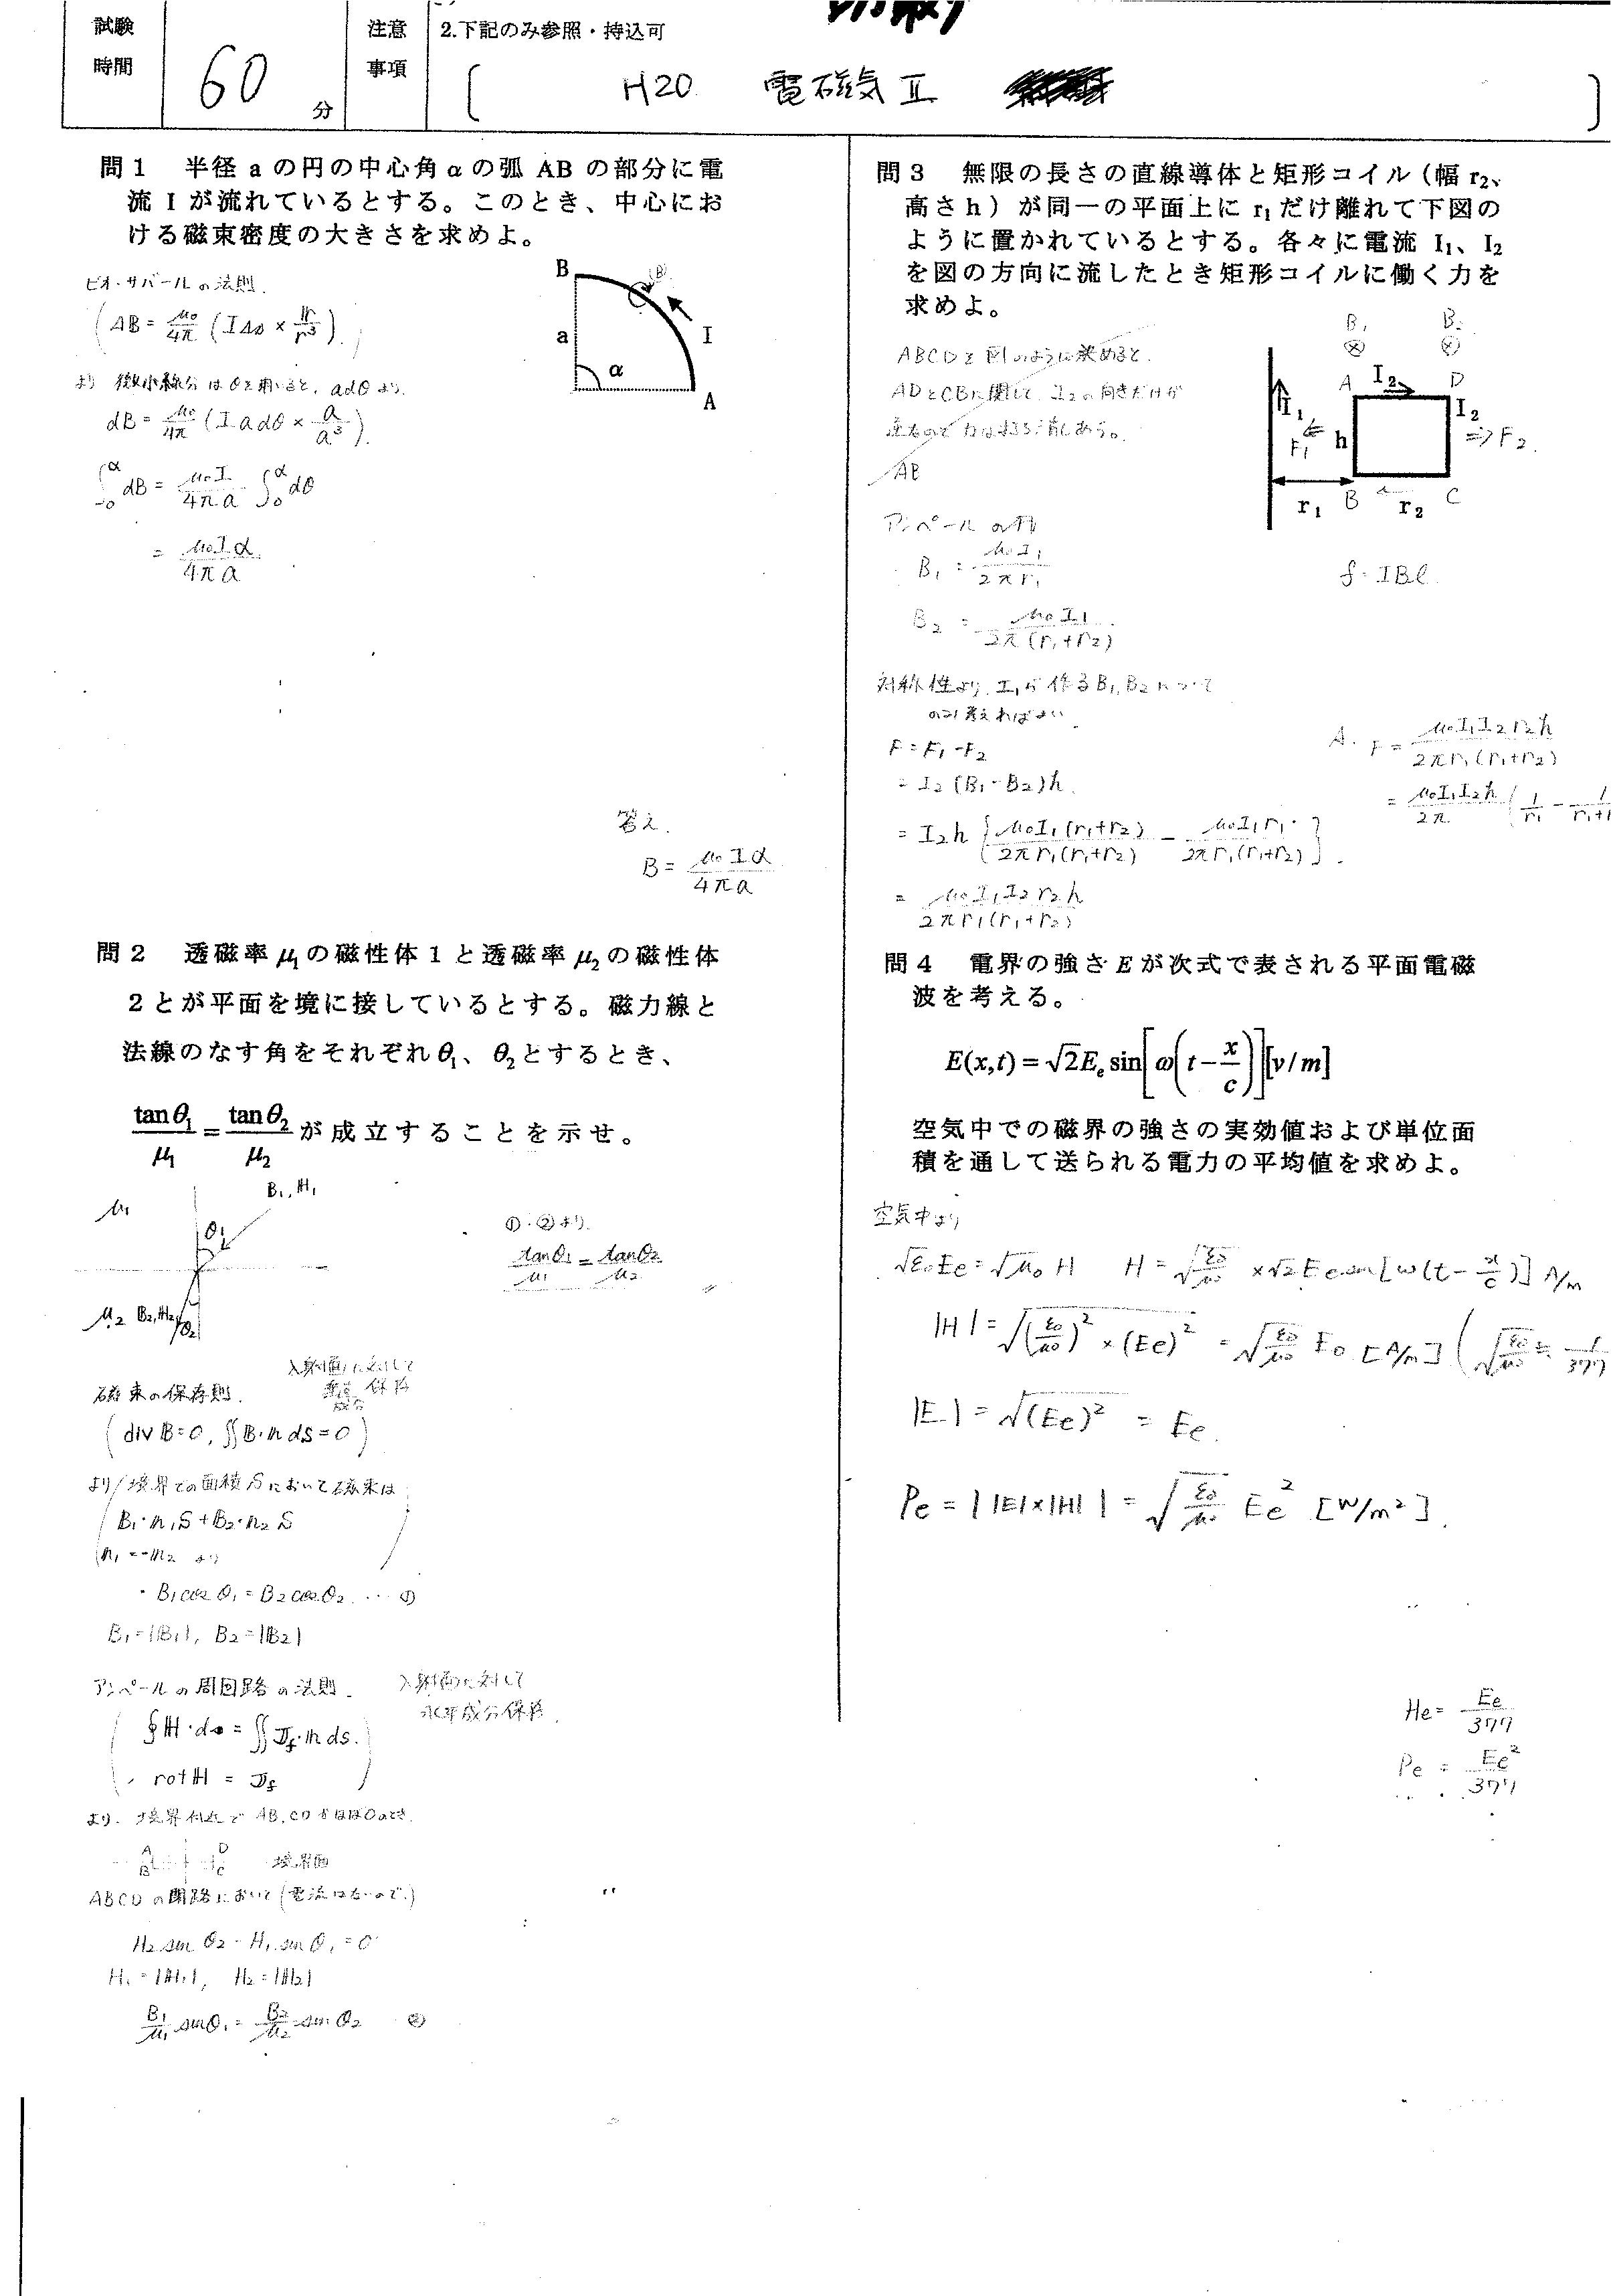 試験
時間
60
分
注意
事項
2.下記のみ参照・持込可
H20 電磁気Ⅱ
問1 半径 a の円の中心角 α の弧 AB の部分に電
流 I が流れているとする。このとき、中心にお
ける磁束密度の大きさを求めよ。
ビオ・サバールの法則.
(ΔB = μ₀/4π (IΔs × r/r³).)
より 微小線分はθを用いると, adθより.
dB = μ₀/4π (I adθ × a/a³).
∫₀^α dB = μ₀I/4πa ∫₀^α dθ
= μ₀Iα/4πa
B
a
α
I
A
答え.
B = μ₀Iα/4πa
問2 透磁率 μ₁ の磁性体 1 と透磁率 μ₂ の磁性体
2 とが平面を境に接しているとする。磁力線と
法線のなす角をそれぞれ θ₁、θ₂ とするとき、
tanθ₁/μ₁ = tanθ₂/μ₂ が成立することを示せ。
μ₁
B₁, H₁
θ₁
μ₂ B₂, H₂
θ₂
①・②より.
tanθ₁/μ₁ = tanθ₂/μ₂
入射面に対して
垂直成分 保存
磁束の保存則.
(div B = 0, ∬B・n dS = 0)
より, 境界での面積Sにおいて磁束は
B₁・n₁S + B₂・n₂S
n₁ = -n₂ より
・B₁cosθ₁ = B₂cosθ₂ … ①
B₁ = |B₁|, B₂ = |B₂|
アンペールの周回路の法則.
入射面に対して
水平成分保存
∮H・ds = ∬J_f・n dS.
rot H = J_f
より. 境界付近で AB, CD がほぼ0のとき.
A D
B C
境界面
ABCDの閉路において(電流はないので.)
H₂sinθ₂ - H₁sinθ₁ = 0
H₁ = |H₁|, H₂ = |H₂|
B₁/μ₁ sinθ₁ = B₂/μ₂ sinθ₂ ②
問3 無限の長さの直線導体と矩形コイル(幅 r₂、
高さ h)が同一の平面上に r₁ だけ離れて下図の
ように置かれているとする。各々に電流 I₁、I₂
を図の方向に流したとき矩形コイルに働く力を
求めよ。
ABCDを図のように決めると.
ADとCBに関して, I₂の向きだけが
逆なので力は打ち消しあう。
AB
B₁ B₂
A I₂ D
I₁ I₂
F₁ h ⇒F₂
r₁ B r₂ C
B₁ = μ₀I₁/2πr₁
f = IBl
B₂ = μ₀I₁/2π(r₁+r₂)
対称性より, I₁が作るB₁, B₂について
のみ考えればよい
F = F₁ - F₂
= I₂(B₁ - B₂)h
= I₂h {μ₀I₁(r₁+r₂)/2πr₁(r₁+r₂) - μ₀I₁r₁/2πr₁(r₁+r₂)}.
= μ₀I₁I₂r₂h/2πr₁(r₁+r₂)
A. F = μ₀I₁I₂r₂h/2πr₁(r₁+r₂)
= μ₀I₁I₂h/2π (1/r₁ - 1/r₁+r
問4 電界の強さ E が次式で表される平面電磁
波を考える。
E(x,t) = √2E_e sin[ω(t - x/c)][v/m]
空気中での磁界の強さの実効値および単位面
積を通して送られる電力の平均値を求めよ。
空気中より
√ε₀Ee = √μ₀ H H = √(ε₀/μ₀) × √2 Ee sin[ω(t - x/c)] A/m
|H| = √((ε₀/μ₀)² × (Ee)²) = √(ε₀/μ₀) Ee [A/m] (√(ε₀/μ₀) ≒ 1/377
|E| = √(Ee)² = Ee.
Pe = ||E|×|H|| = √(ε₀/μ₀) Ee² [W/m²].
He = Ee/377
Pe = Ee²/377